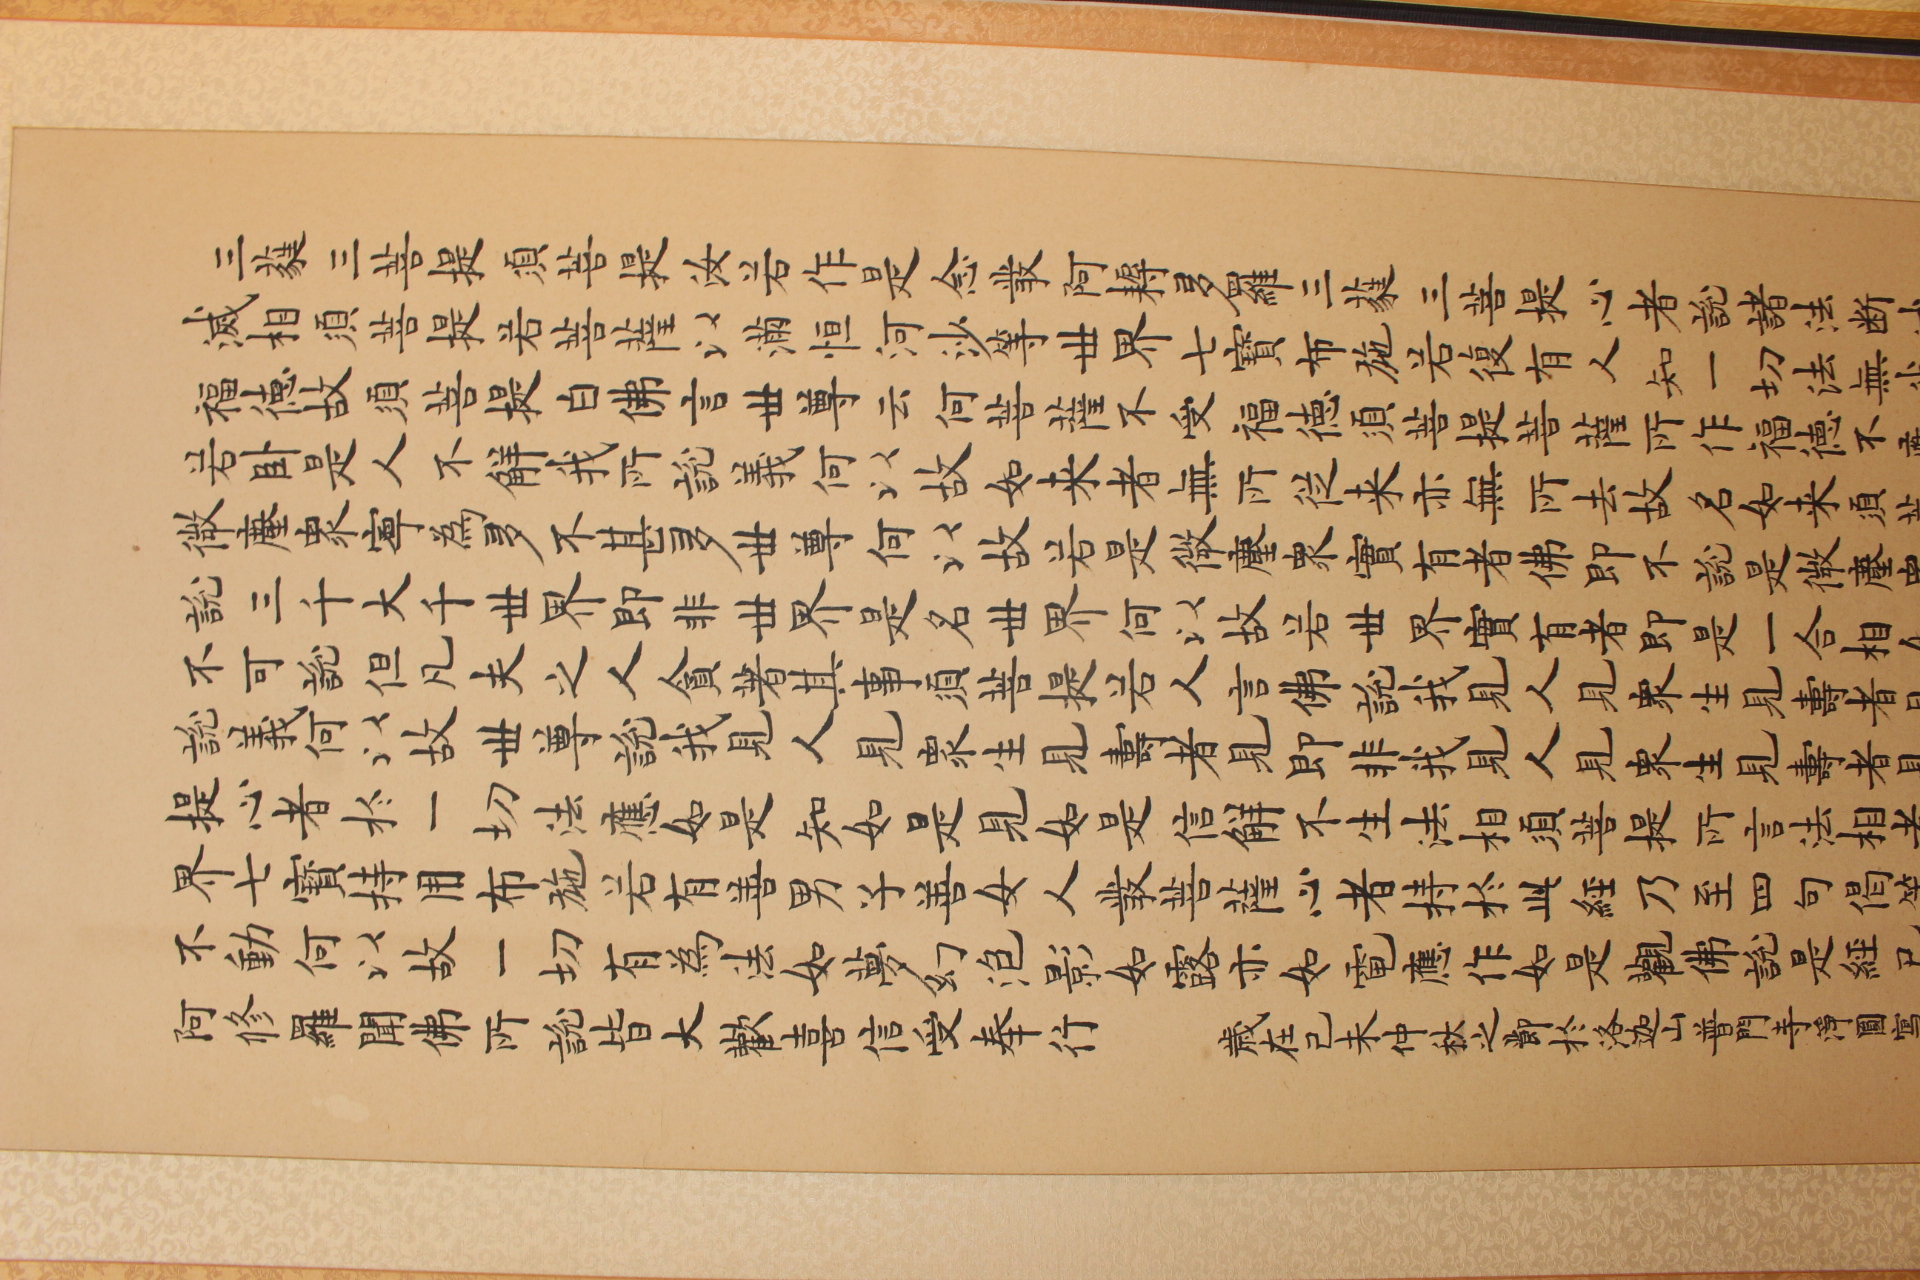 三藐三菩提須菩提汝若作是念發阿耨多羅三藐三菩提心者説諸法断
滅相須菩提若菩薩以滿恒河沙等世界七寶布施若復有人知一切法無
福德故須菩提白佛言世尊云何菩薩不受福德須菩提菩薩所作福德不
若卧是人不解我所説義何以故如来者無所従来亦無所去故名如来須
微塵衆寧為多不甚多世尊何以故若是微塵衆實有者佛即不説是微塵衆
説三千大千世界即非世界是名世界何以故若世界實有者即是一合相
不可説但凡夫之人貪著其事須菩提若人言佛説我見人見衆生見壽者
説義何以故世尊説我見人見衆生見壽者見即非我見人見衆生見壽者見
提心者於一切法應如是知如是見如是信解不生法相須菩提所言法相者
界七寶持用布施若有善男子善女人發菩薩心者持於此經乃至四句偈等
不動何以故一切有為法如夢幻泡影如露亦如電應作如是觀佛説是經已
阿修羅聞佛所説皆大歡喜信受奉行
歲在己未仲秋之節於洛迦山普門寺淨圓寫